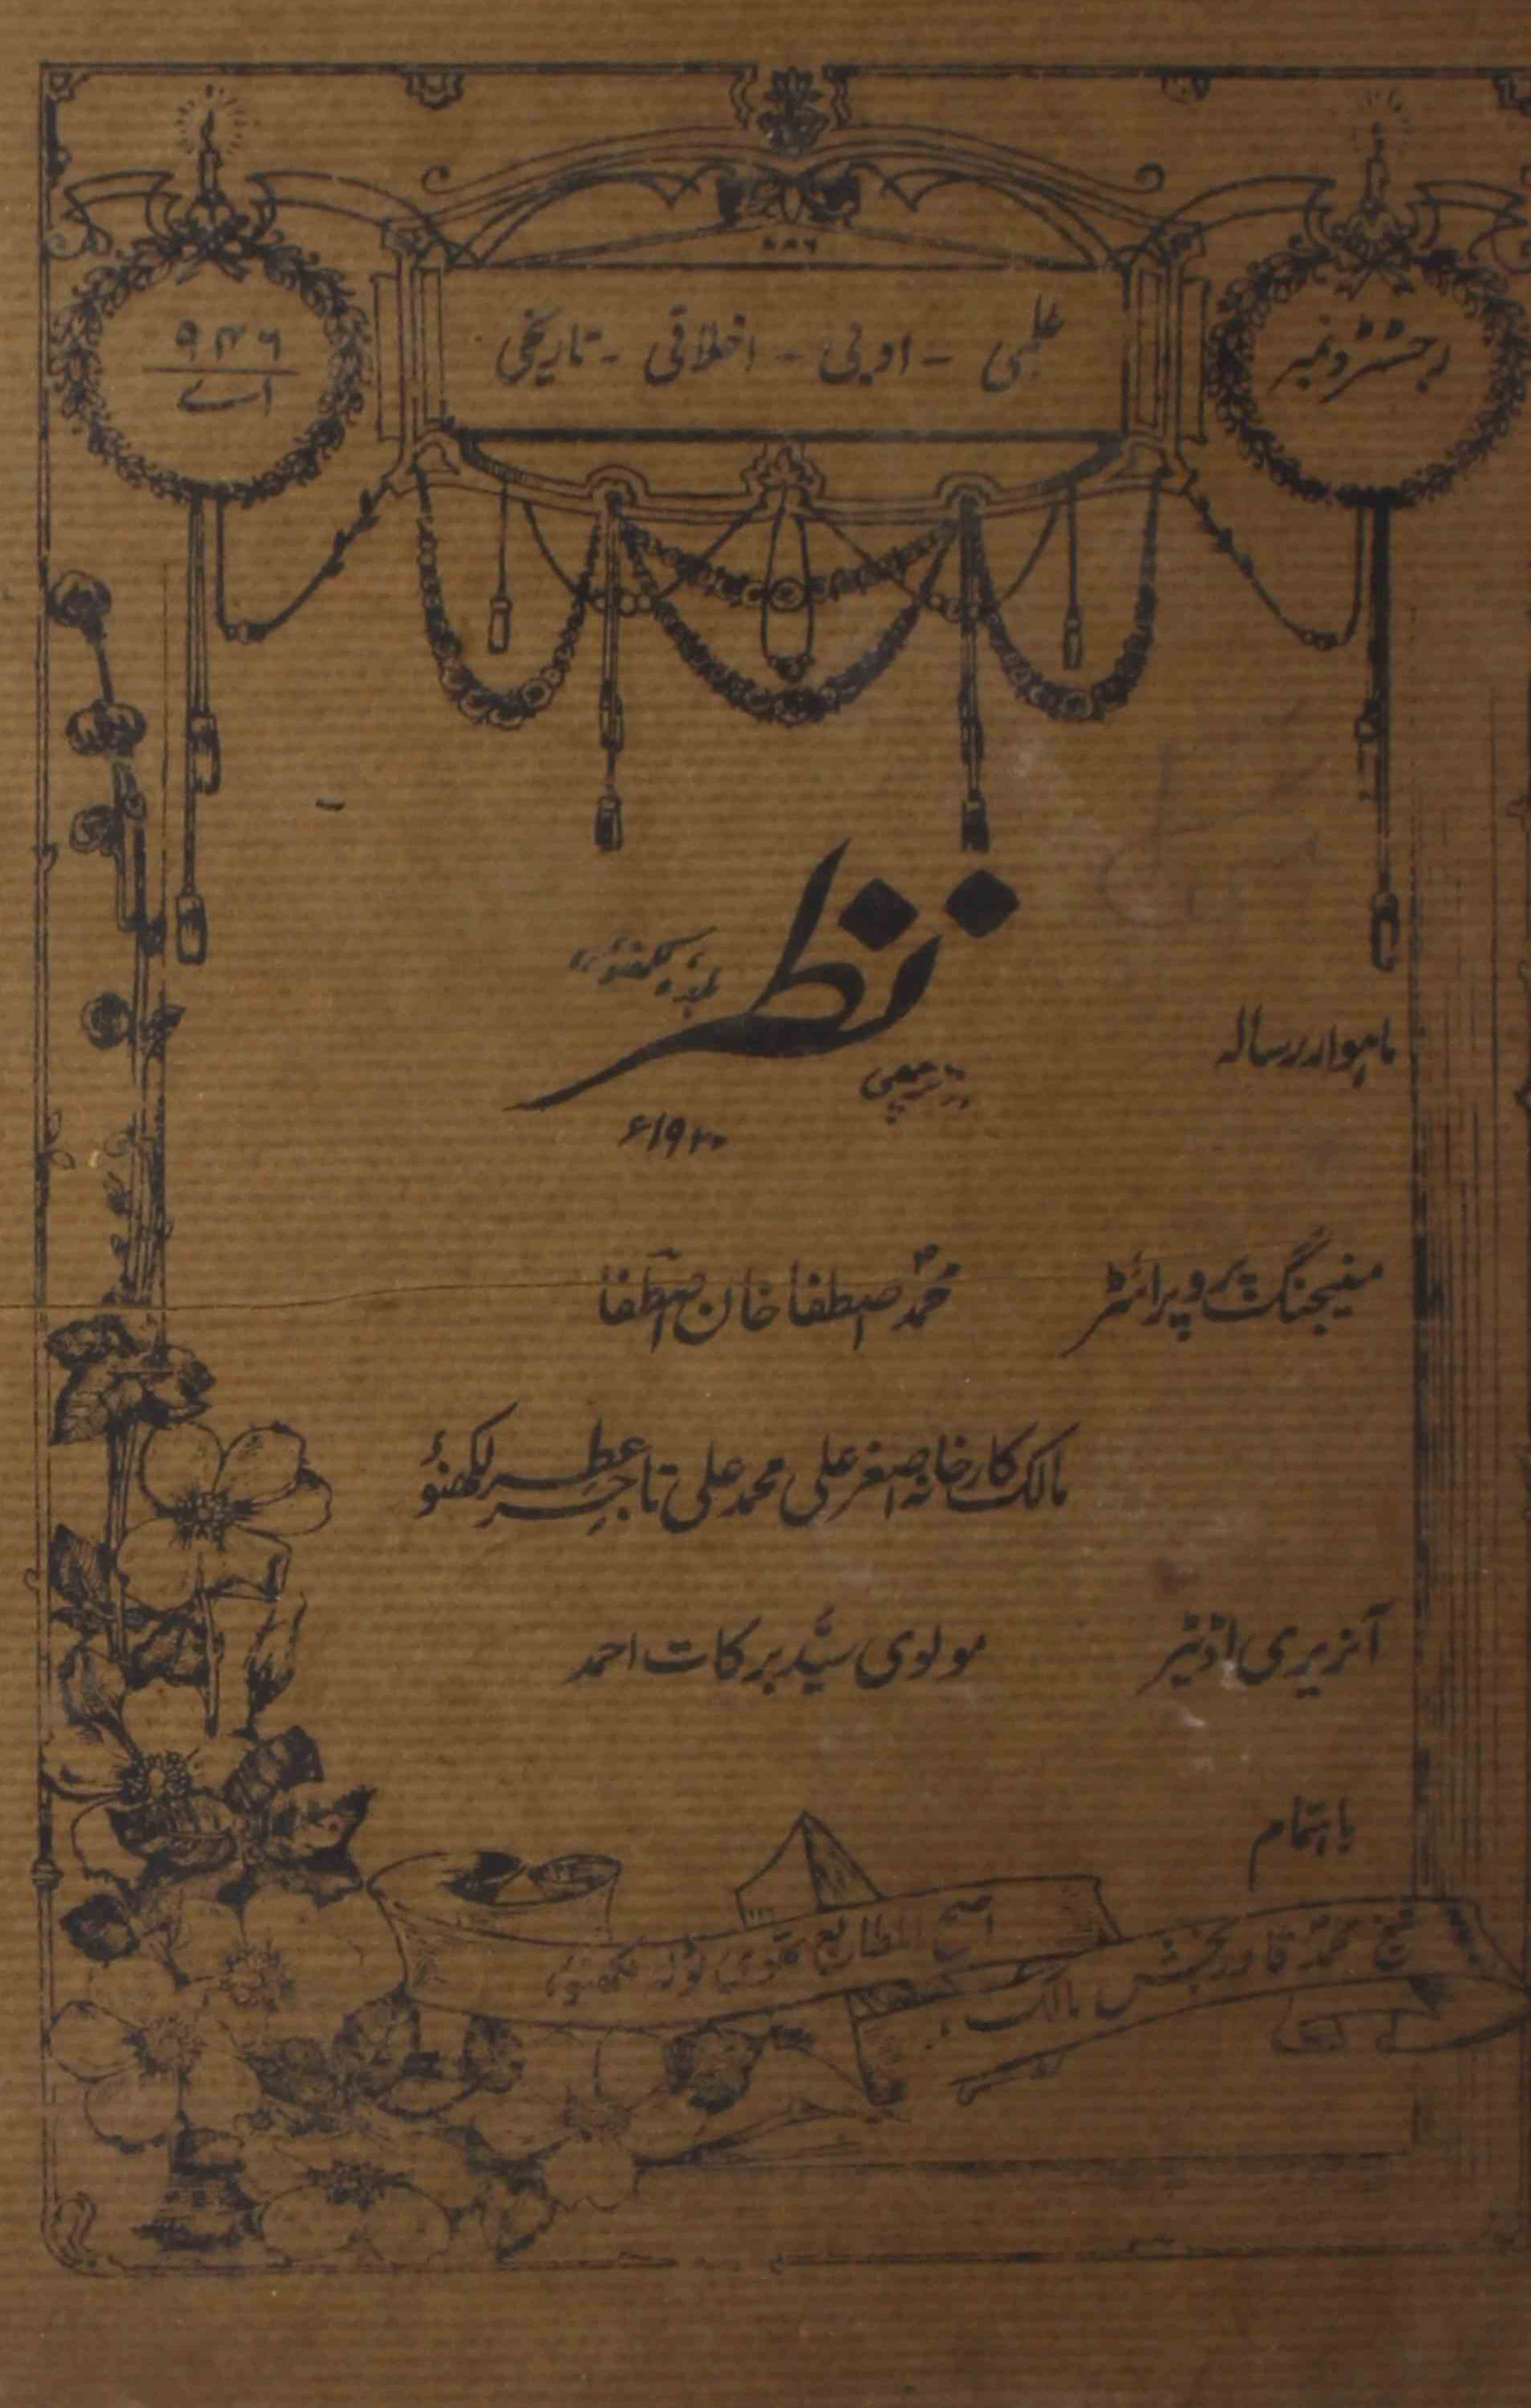 ۷۸۶
رجسٹرڈ نمبر
علمی - ادبی - اخلاقی - تاریخی
۹۴۶
اے
ماہوار رسالہ
نظر
لکھنؤ
۱۹۲۰ء
منیجنگ پروپرائٹر محمد اصطفا خان اصطفا
مالک کارخانہ اصغر علی محمد علی تاجر عطر لکھنؤ
آنریری اڈیٹر مولوی سید برکات احمد
باہتمام
شیخ محمد قادر بخش مالک
اصح المطابع لکھنؤ